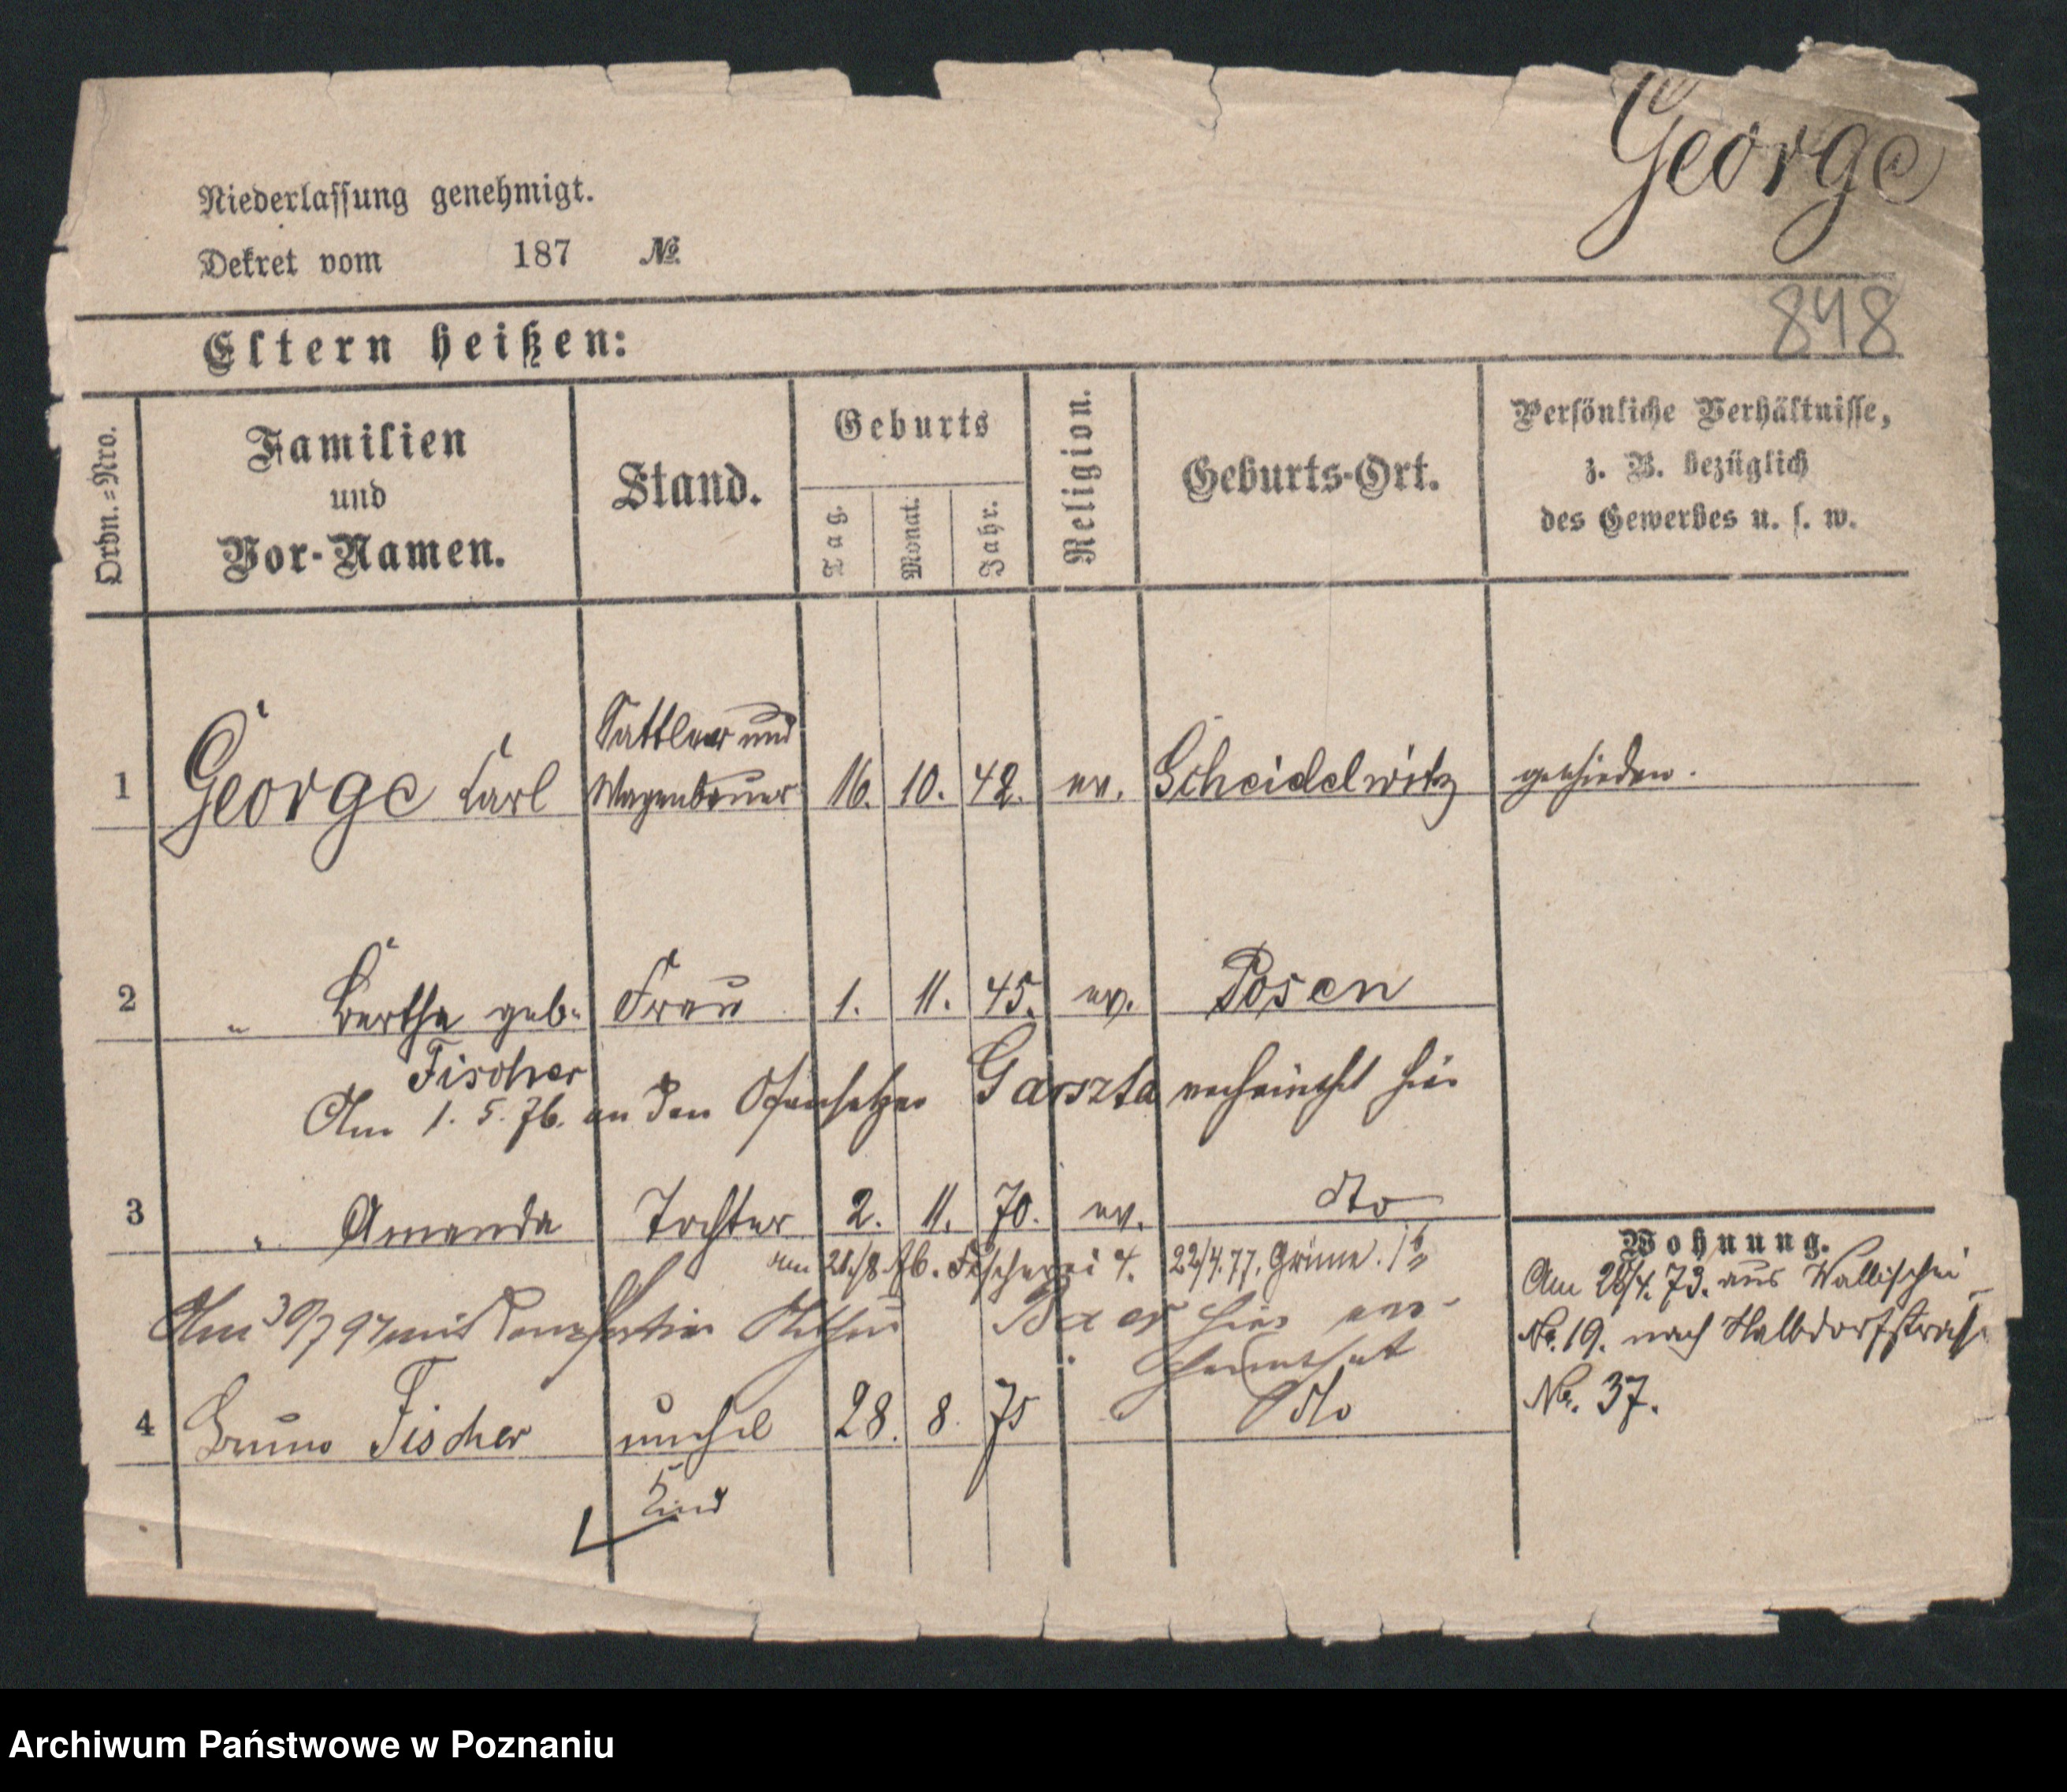 George
Niederlassung genehmigt.
Dekret vom 187 №
848
Eltern heißen:
Ordn.=Nro.
Familien
und
Vor-Namen.
Stand.
Geburts
Tag.
Monat.
Jahr.
Religion.
Geburts-Ort.
Persönliche Verhältnisse,
z. B. bezüglich
des Gewerbes u. s. w.
Sattler und
1 George Carl Wagenbauer 16. 10. 42. ev. Scheidelwitz geschieden.
2 " Bertha geb. Frau 1. 11. 45. ev. Posen
Fischer
Am 1. 5. 76. an den Ofensetzer Garszta verheirathet hier
3 " Amanda Tochter 2. 11. 70. ev. dto
am 21/8. 76. Fischerei 4. 22/4. 77. Grüne.
Am 30/7 94 mit Baer hier ver-
heirathet
4 Bruno Fischer unehel 28. 8. 75 dto
Kind
Wohnung.
Am 28/4. 73. aus Wallischei
No. 19. nach Halbdorfstraße
No. 37.
Archiwum Państwowe w Poznaniu